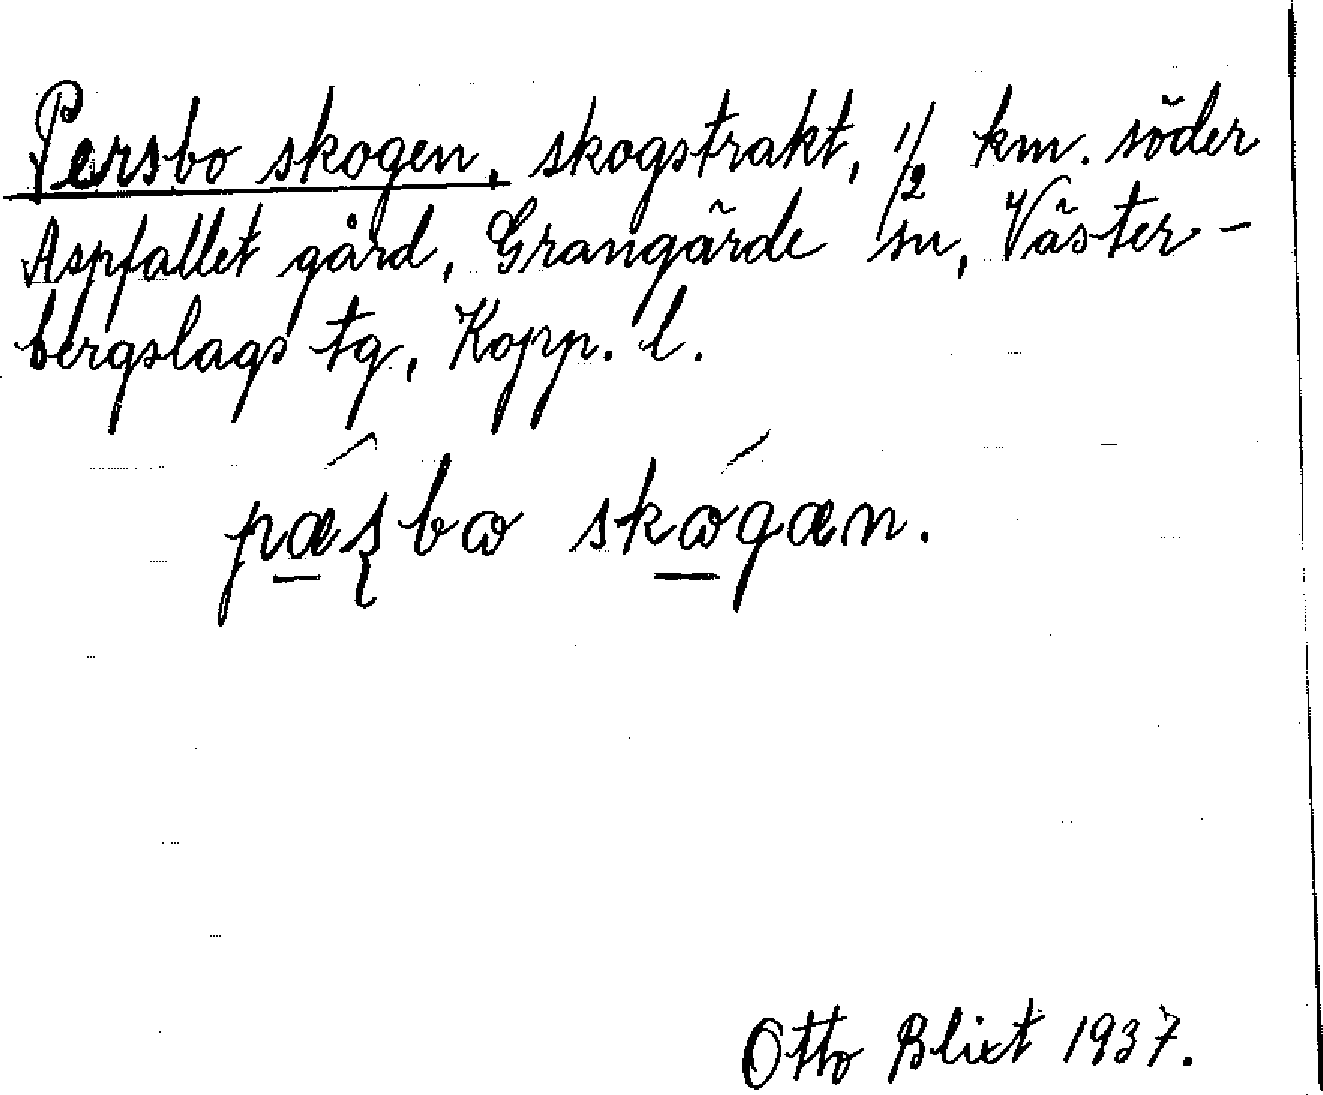 Persbo skogen, skogstrakt, 1/2 km. söder
Aspfallet gård, Grangärde sn, Väster-
bergslags tg, Kopp. l.
pæʂbɷ skɷgæn.
Otto Blixt 1937.